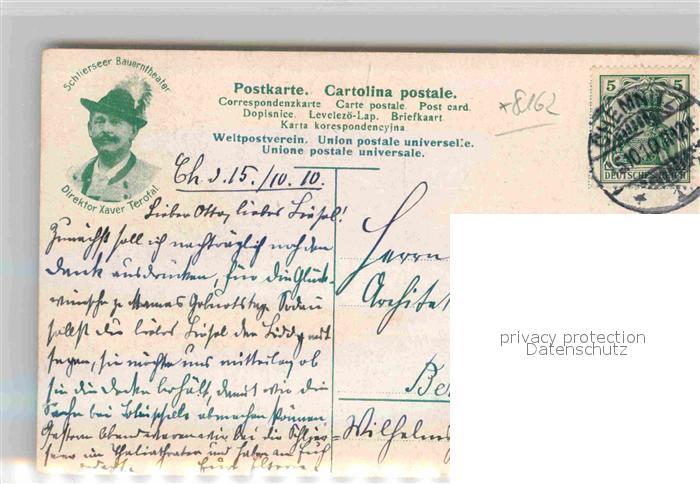 Schlierseer Bauerntheater
Direktor Xaver Terofal
Postkarte. Cartolina postale.
Correspondenzkarte Carte postale. Post card.
Dopisnice. Levelező-Lap. Briefkaart.
Karta korespondencyjna.
Weltpostverein. Union postale universelle.
Unione postale universale.
*8162
5 5
CHEMNITZ
DEUTSCHES REICH
Ch. d. 15./10.10.
Lieber Otto, liebes Liesel!
Zunächst soll ich nachträglich noch den
Dank ausdrücken, für die Glück-
wünsche z. Mamas Geburtstag. Sodann
sollst du liebes Liesel der
sagen, sie möchte uns mitteilen, ob
sie die Decken behält, damit wir die
Sache bei abmachen können.
Gestern Abend waren wir bei die Schlier-
seer im Thaliatheater und haben an Euch
gedacht.
Herrn
Archite
Be
Wilhelms
privacy protection
Datenschutz